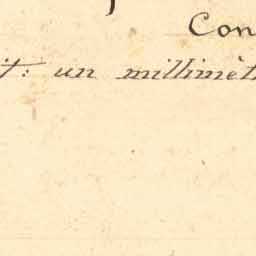 Con
it: un millimèt